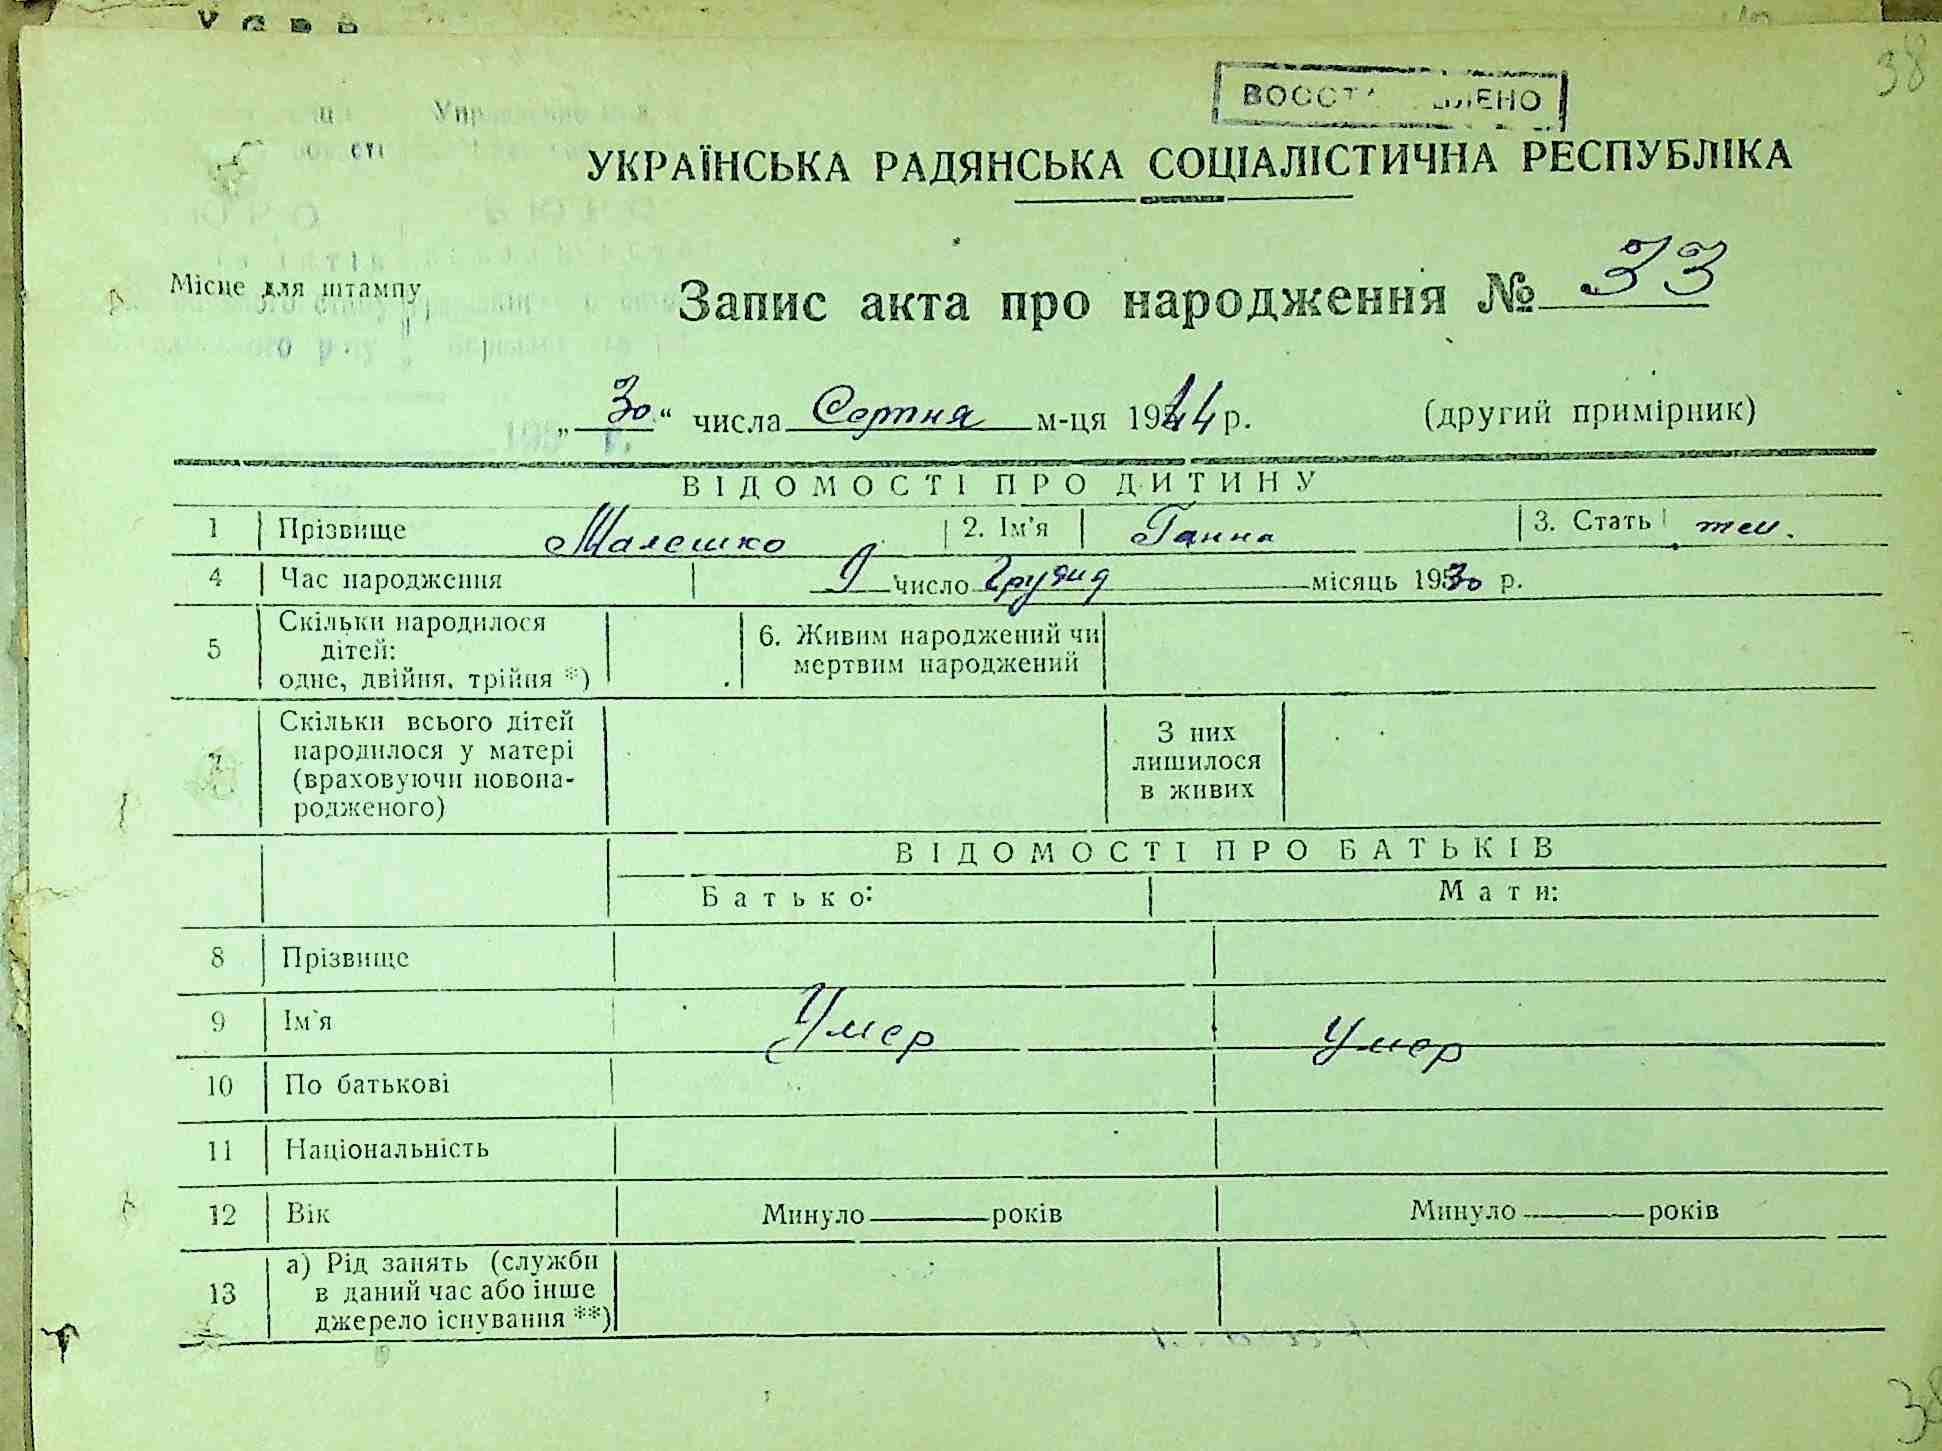 38
УКРАЇНСЬКА РАДЯНСЬКА СОЦІАЛІСТИЧНА РЕСПУБЛІКА
Місце для штампу
Запис акта про народження № 33
„ 30 “ числа Серпня м-ця 1944 р. (другий примірник)
ВІДОМОСТІ ПРО ДИТИНУ
1 Прізвище Малешко 2. Ім'я Ганна 3. Стать жен.
4 Час народження 9 число Грудня місяць 1930 р.
5 Скільки народилося дітей: одне, двійня, трійня *) 6. Живим народжений чи мертвим народжений
7 Скільки всього дітей народилося у матері (враховуючи новона-родженого) З них лишилося в живих
ВІДОМОСТІ ПРО БАТЬКІВ
Батько: Мати:
8 Прізвище
9 Ім'я Умер Умер
10 По батькові
11 Національність
12 Вік Минуло років Минуло років
13 а) Рід занять (служби в даний час або інше джерело існування **)
38